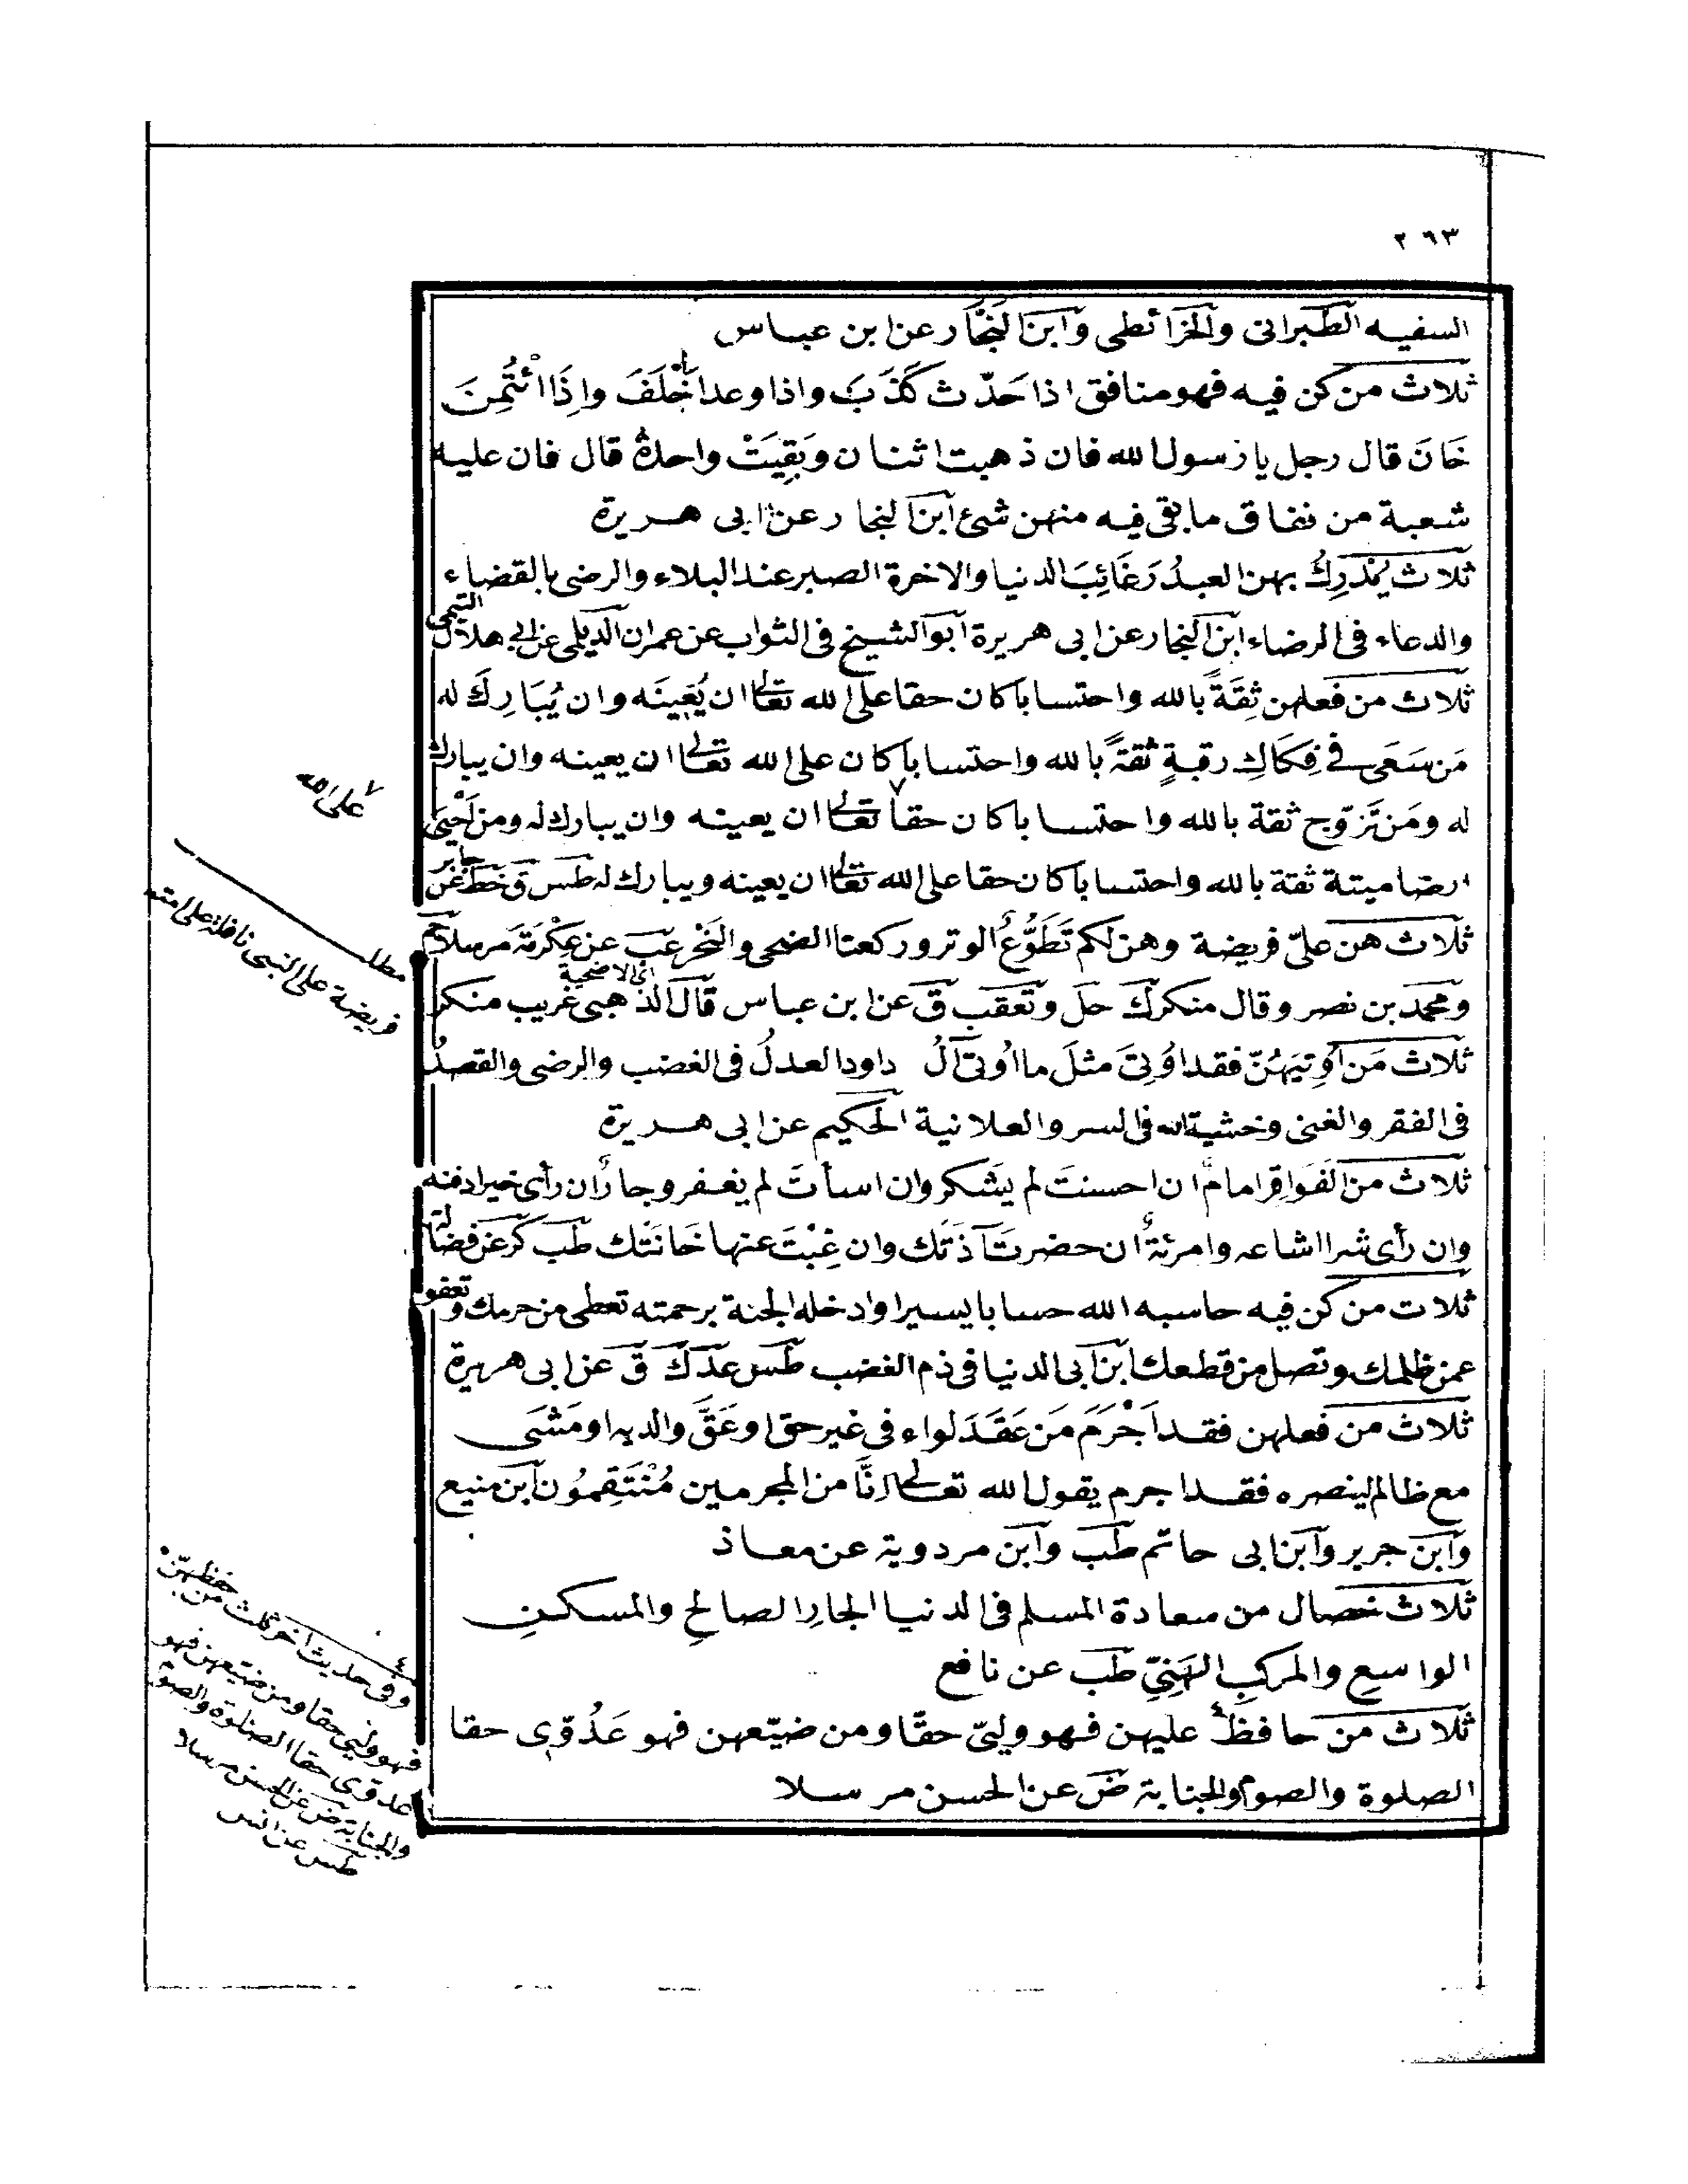 ٢٦٣
السفيه الطبرانى والخرائطى وابن النجار عن ابن عباس
ثلاث من كن فيه فهو منافق اذا حَدّث كَذَبَ واذا وعد اخْلَفَ واِذَا ائْتُمِنَ
خَانَ قال رجل يا رسول الله فان ذهبت اثنان وَبَقِيَتْ واحدةٌ قال فان عليه
شعبة من نفاق ما بقى فيه منهن شئ ابن النجار عن ابى هريرة
ثلاث يُدْرِكُ بهن العبدُ رَغَائِبَ الدنيا والاخرة الصبر عند البلاء والرضى بالقضاء
والدعاء فى الرضاء ابن النجار عن ابى هريرة ابو الشيخ فى الثواب عن عمران الديلمى عن ابى هلال التيمى
ثلاث من فعلهن ثِقَةً بالله واحتسابا كان حقا على الله تعالى ان يُعِينَه وان يُبَارِكَ له
مَن سَعَى فى فِكَاكِ رقبةٍ ثقةً بالله واحتسابا كان على الله تعالى ان يعينه وان يبارك
له ومَن تَزَوّج ثقة بالله واحتسابا كان حقا تعالى ان يعينه وان يبارك له ومن اَحْيَى
ارضا ميتة ثقة بالله واحتسابا كان حقا على الله تعالى ان يعينه ويبارك له طس ق خط عن جابر
ثلاث هن علىّ فريضة وهن لكم تَطَوُّعٌ الوتر وركعتا الضحى والنَحْر عب عن عِكْرَمَة مرسلا حم
ومحمد بن نصر وقال منكر ك حل وتعقب ق عن ابن عباس قال الذهبى غريب منكر
اى الاضحية
ثلاث مَن اُوتِيَهُنّ فقد اُوتِىَ مثلَ ما اُوتى آلُ داود العدلُ فى الغضب والرضى والقصدُ
فى الفقر والغنى وخشية الله فى السر والعلانية الحكيم عن ابى هريرة
ثلاث من الفَوَاقِر امامٌ ان احسنتَ لم يشكر وان اسأتَ لم يغفر وجارٌ ان رأى خيرا دفنه
وان رأى شرا اشاعه وامرئةٌ ان حضرتَ آذَتك وان غِبْتَ عنها خَانَتْك طب كر عن فضالة
ثلاث من كن فيه حاسبه الله حسابا يسيرا وادخله الجنة برحمته تعطى من حرمك وتعفو
عمن ظلمك وتصل من قطعك ابن ابى الدنيا فى ذم الغضب طس عد ك ق عن ابى هريرة
ثلاث من فعلهن فقد اَجْرَمَ مَن عَقَدَ لواء فى غير حق او عَقَّ والديه او مَشَى
مع ظالم لينصره فقد اجرم يقول الله تعالى انَّا من المجرمين مُنْتَقِمُون ابن منيع
وابن جرير وابن ابى حاتم طب وابن مردوية عن معاذ
ثلاث خصال من سعادة المسلم فى الدنيا الجارِ الصالحِ والمسكنِ
الواسعِ والمركبِ الهَنِىِّ طب عن نافع
ثلاث من حافظ عليهن فهو ولىّ حقّا ومن ضيّعهن فهو عَدُوّى حقا
الصلوة والصوم والجنابة ض عن الحسن مرسلا
على الله
مطلب
فريضة على النبى نافلة على امته
وفى حديث اخر ثلث من حفظهنّ
فهو ولىّ حقا ومن ضيّعهن فهو
عدوى حقا الصلوة والصوم
والجنابة ض عن الحسن مرسلا
طس عن انس